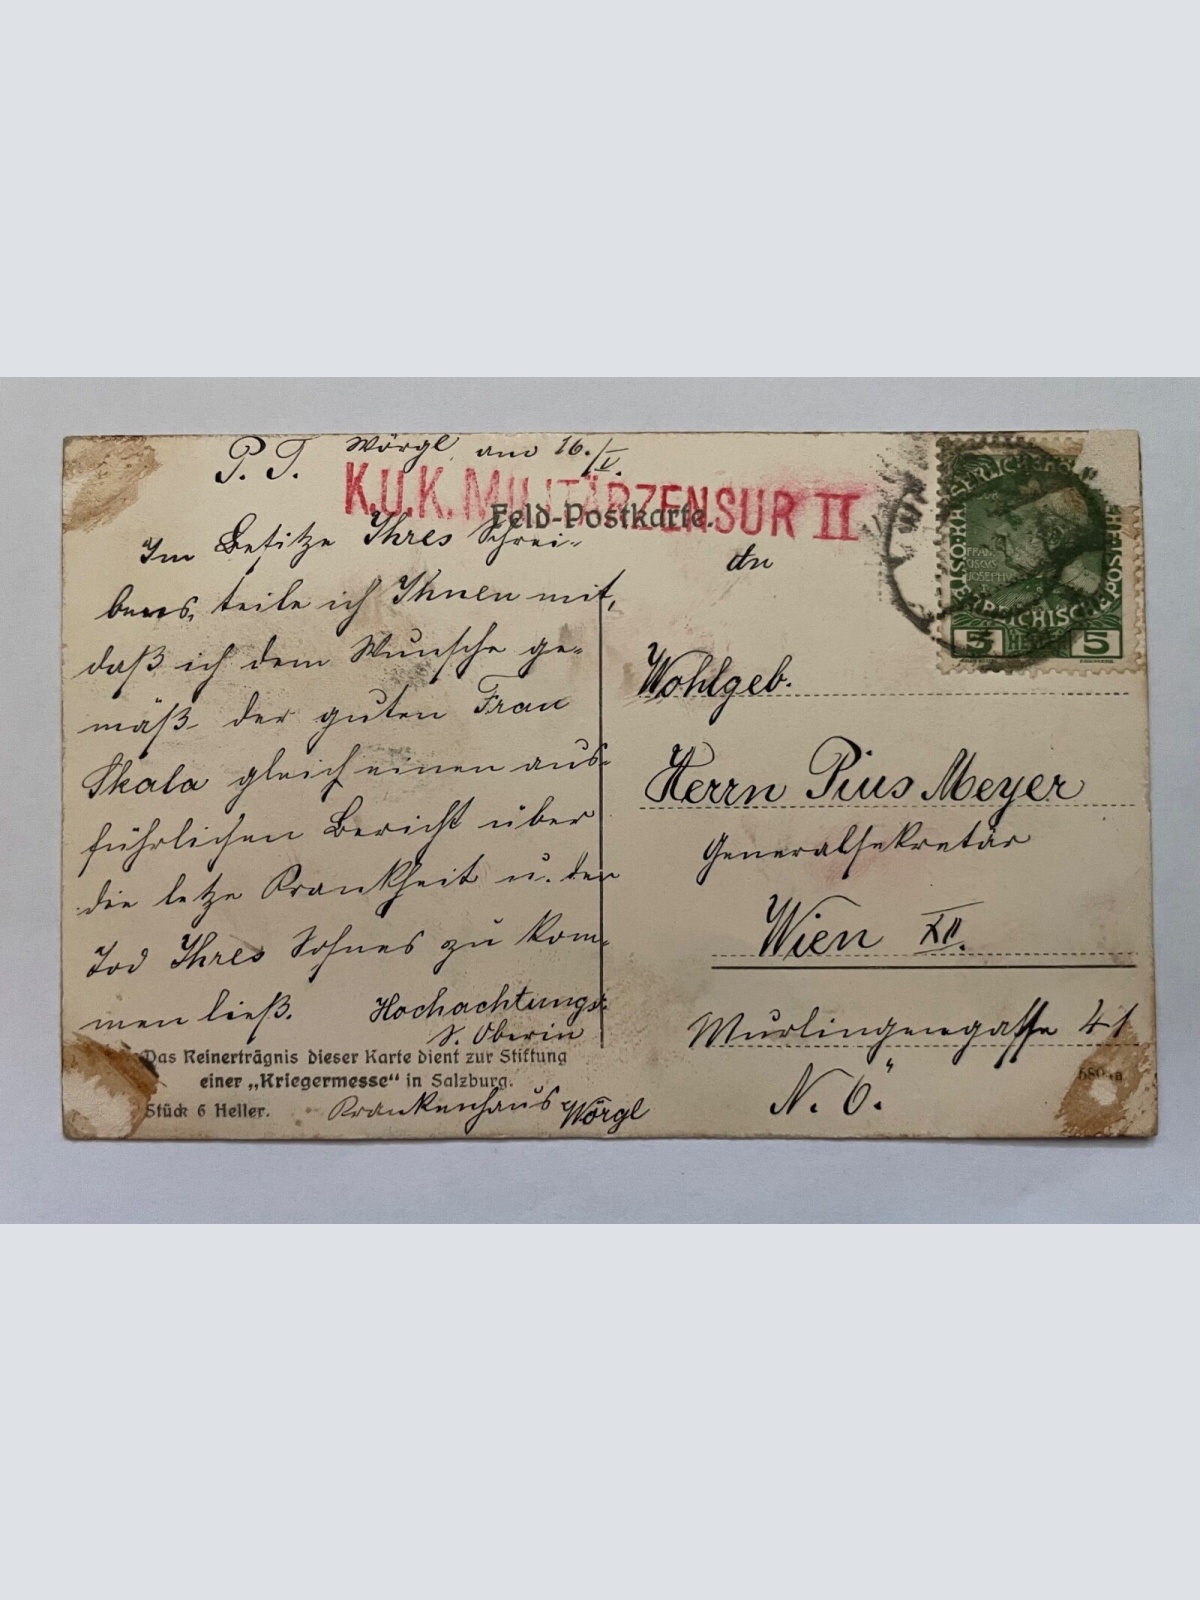 P. T. Wörgl, am 16./V.
K.U.K. MILITÄRZENSUR II
Feld-Postkarte.
Im Besitze Ihres Schrei-
bens, teile ich Ihnen mit,
daß ich dem Wunsche ge-
mäß der guten Frau
Skala gleich einen aus-
führlichen Bericht über
die letze Krankheit u. den
Tod Ihres Sohnes zu kom-
men ließ. Hochachtungs:
S. Oberin
Das Reinerträgnis dieser Karte dient zur Stiftung
einer „Kriegermesse" in Salzburg.
Stück 6 Heller. Krankenhaus Wörgl
An
Wohlgeb.
Herrn Pius Meyer
Generalsekretär
Wien XII.
Wurlingergasse 41
N. Ö.
FRAN
CISCVS
JOSEPHV
5 HELLER 5